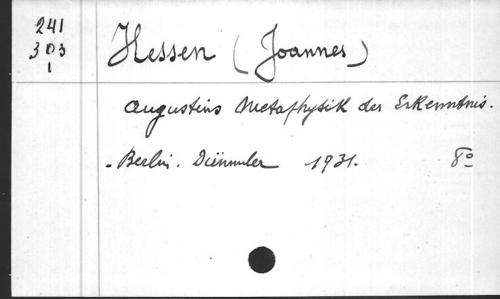 241
303
1
Hessen (Joannes)
Augustins Metaphysik der Erkenntnis.
Berlin. Dümmler 1931. 8°